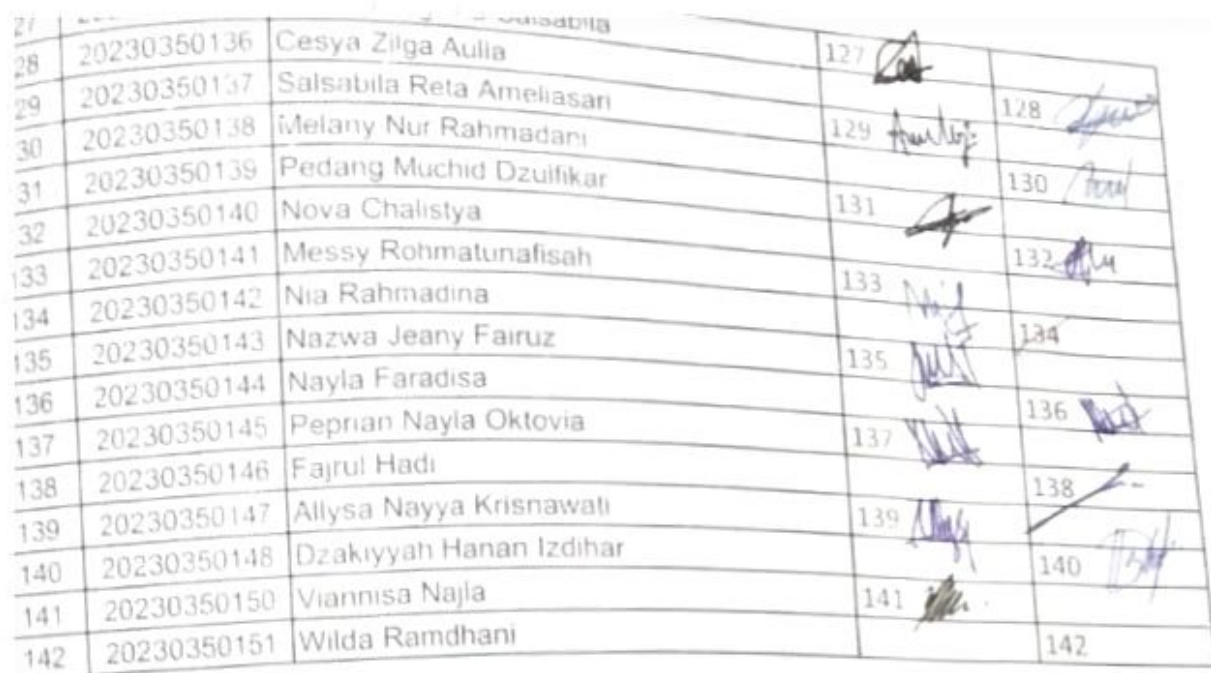 27 Salsabila
28 20230350136 Cesya Zilga Aulia 127
29 20230350137 Salsabila Reta Ameliasari 128
30 20230350138 Melany Nur Rahmadani 129
31 20230350139 Pedang Muchid Dzulfikar 130
32 20230350140 Nova Chalistya 131
133 20230350141 Messy Rohmatunafisah 132
134 20230350142 Nia Rahmadina 133
135 20230350143 Nazwa Jeany Fairuz 134
136 20230350144 Nayla Faradisa 135
137 20230350145 Peprian Nayla Oktovia 136
138 20230350146 Fajrul Hadi 137
139 20230350147 Allysa Nayya Krisnawati 138
140 20230350148 Dzakiyyah Hanan Izdihar 139
141 20230350150 Viannisa Najla 140
142 20230350151 Wilda Ramdhani 141
142